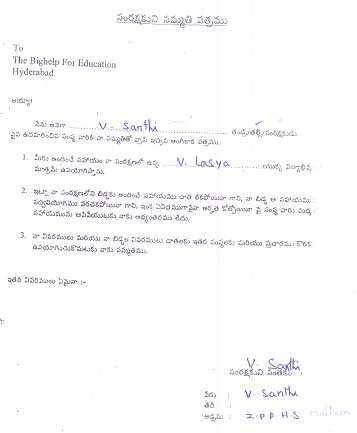 సంరక్షకుని సమ్మతి పత్రము
To
The Bighelp For Education
Hyderabad
అయ్యా!
నేను అనగా V. Santhi తండ్రి/తల్లి/సంరక్షకుడు
పైన ఉదహరించిన సంస్థ వారికి నా సమ్మతితో వ్రాసి ఇచ్చిన అంగీకార పత్రము.
1. మీరు అందించే సహాయం నా సంరక్షణలో ఉన్న V. Lasya యొక్క విద్యాభివృ
మాత్రమే ఉపయోగిస్తాను.
2. ఇట్లా నా సంరక్షణలోని బిడ్డకు అందించే సహాయము చాల లేకపోయినా గాని, నా బిడ్డ ఆ సహాయము
సద్వినియోగము పరచకపోయినా గాని, ఇంక ఏవిధముగానైనా అర్హత కోల్పోయినా పై సంస్థ వారు
సహాయమును ఆపివేయుటకు నాకు అభ్యంతరము లేదు.
3. నా వివరములు మరియు నా బిడ్డల వివరములు దాతలకు ఇతర సంస్థలకు మరియు ప్రచారము కొరకు
ఉపయోగించుకొనుటకు నాకు సమ్మతము.
ఇతర వివరములు ఏమైనా :-
V. Santhi
సంరక్షకుని సంతకం
పేరు : V. Santhi
తేదీ :
అడ్రసు : Z.P.P.H.S. Mallam